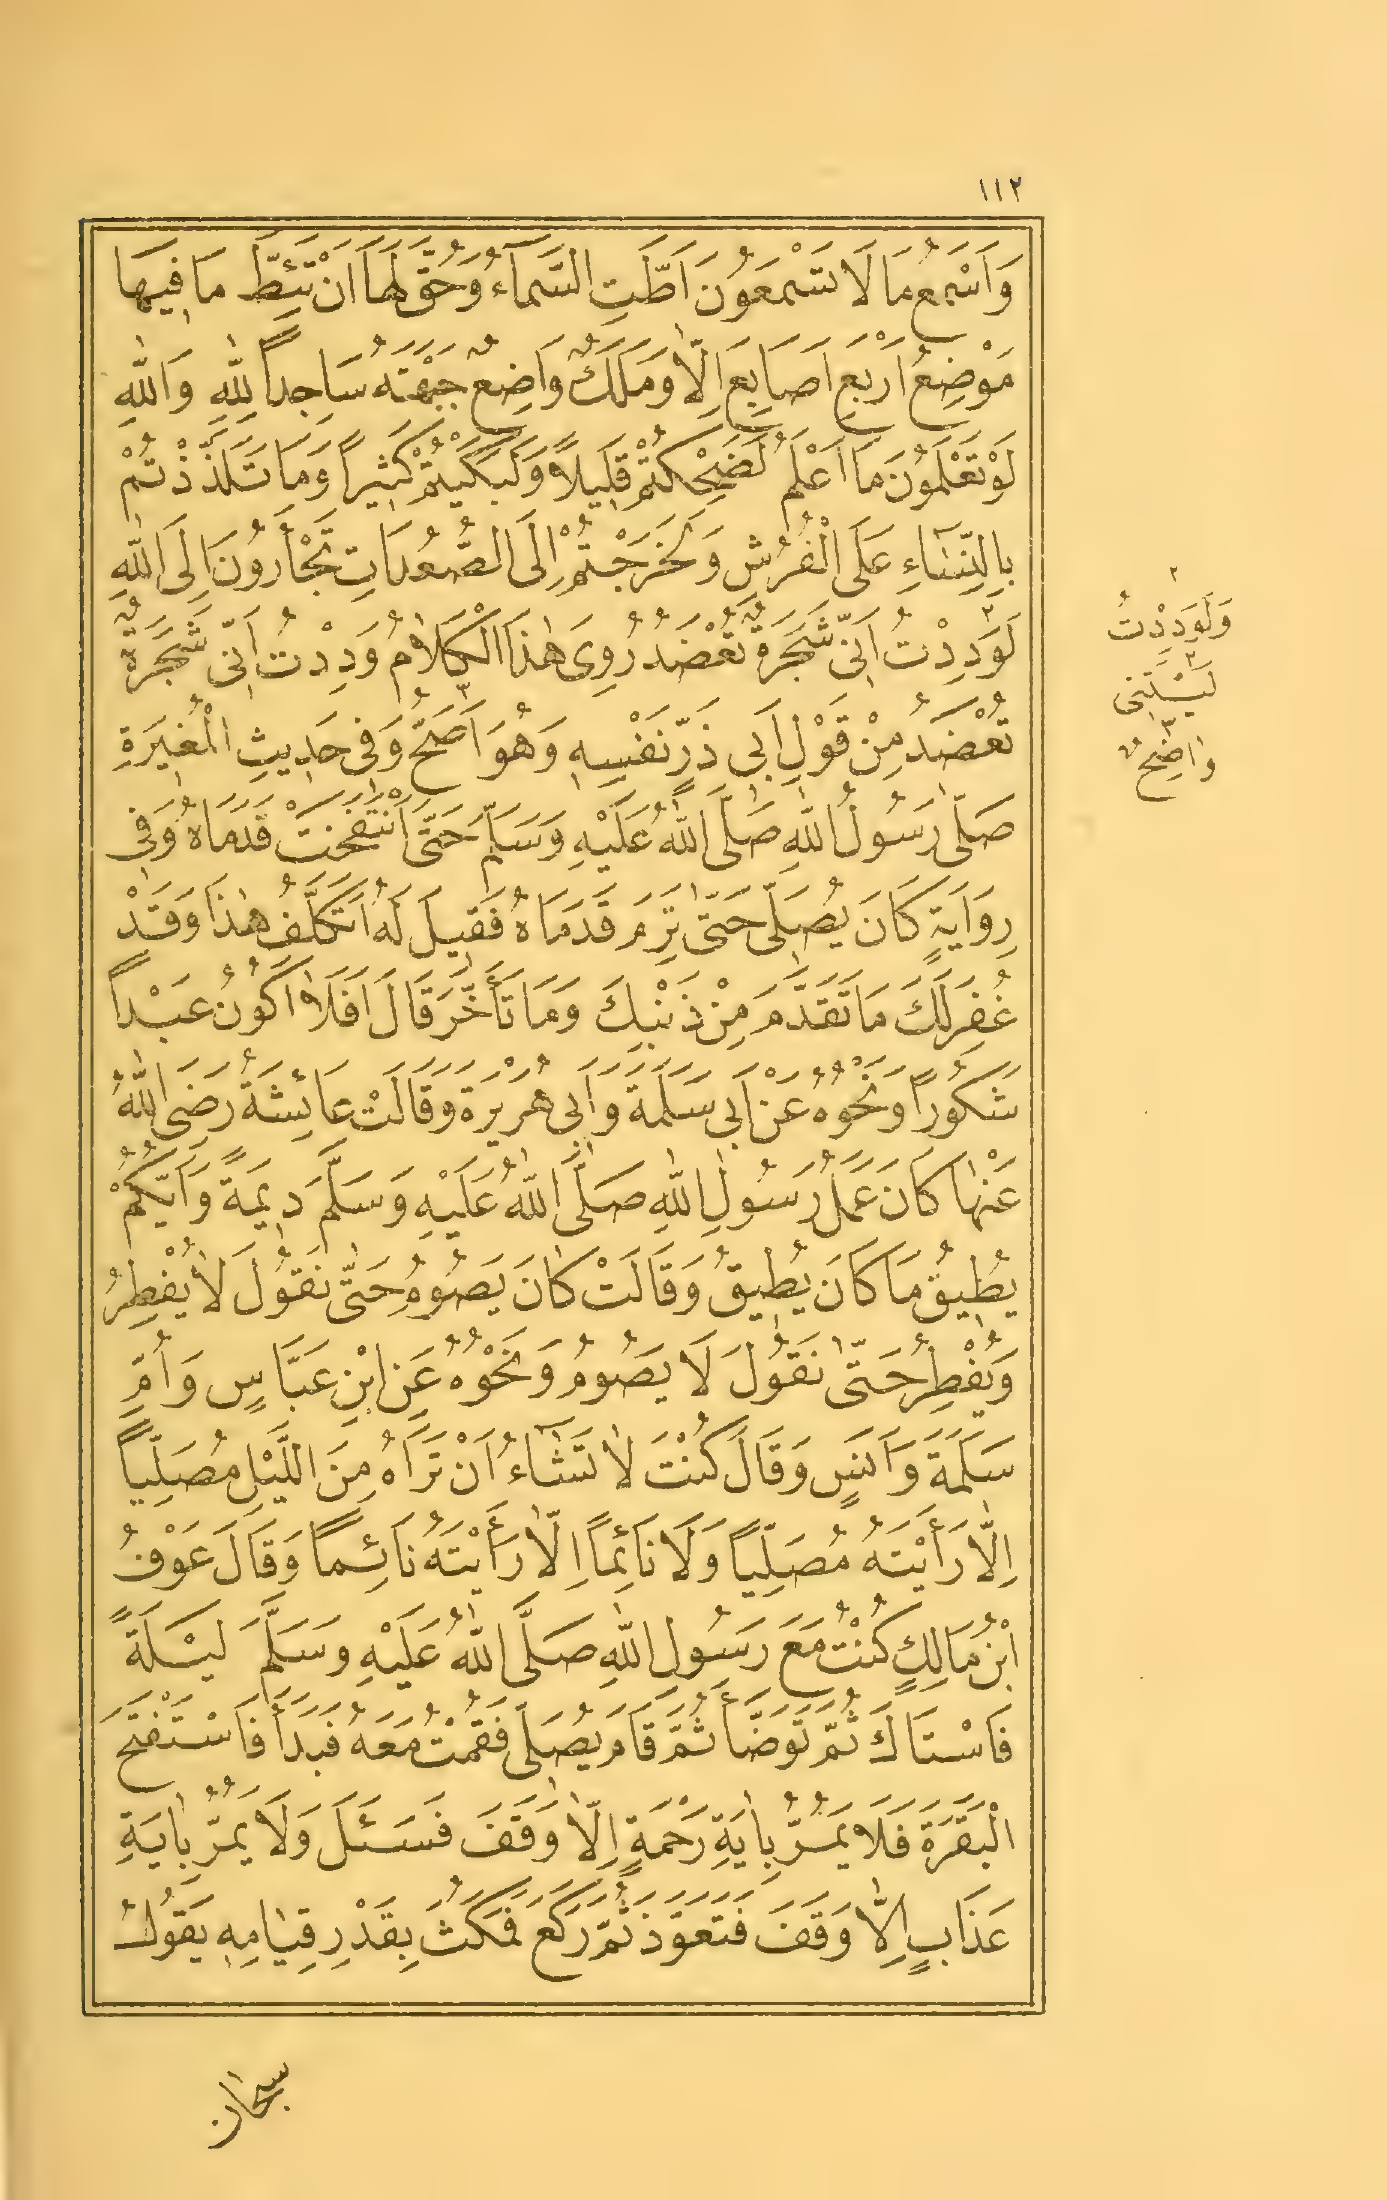 ١١٢
وَاَسْمَعُ مَا لَا تَسْمَعُونَ اَطَّتِ السَّمَآءُ وَحُقَّ لَهَا اَنْ تَئِطَّ مَا فِيهَا
مَوْضِعُ اَرْبَعِ اَصَابِعَ اِلَّا وَمَلَكٌ وَاضِعٌ جَبْهَتَهُ سَاجِداً لِلّٰهِ وَاللّٰهِ
لَوْ تَعْلَمُونَ مَا اَعْلَمُ لَضَحِكْتُمْ قَلِيلاً وَلَبَكَيْتُمْ كَثِيراً وَمَا تَلَذَّذْتُمْ
بِالنِّسَاءِ عَلَى الْفُرُشِ وَلَخَرَجْتُمْ اِلَى الصُّعُدَاتِ تَجْأَرُونَ اِلَى اللّٰهِ
لَوَدِدْتُ اَنِّى شَجَرَةٌ تُعْضَدُ رُوِىَ هٰذَا الْكَلَامُ وَدِدْتُ اَنِّى شَجَرَةٌ
تُعْضَدُ مِنْ قَوْلِ اَبِى ذَرٍّ نَفْسِهِ وَهُوَ اَصَحُّ وَفِى حَدِيثِ الْمُغِيرَةِ
صَلَّى رَسُولُ اللّٰهِ صَلَّى اللّٰهُ عَلَيْهِ وَسَلَّمَ حَتّٰى اَنْتَفَخَتْ قَدَمَاهُ وَفِى
رِوَايَةٍ كَانَ يُصَلِّى حَتّٰى تَرِمَ قَدَمَاهُ فَقِيلَ لَهُ اَتَكَلَّفُ هٰذَا وَقَدْ
غُفِرَ لَكَ مَا تَقَدَّمَ مِنْ ذَنْبِكَ وَمَا تَأَخَّرَ قَالَ اَفَلَا اَكُونُ عَبْداً
شَكُورًا وَنَحْوُهُ عَنْ اَبِى سَلَمَةَ وَاَبِى هُرَيْرَةَ وَقَالَتْ عَائِشَةُ رَضِىَ اللّٰهُ
عَنْهَا كَانَ عَمَلُ رَسُولِ اللّٰهِ صَلَّى اللّٰهُ عَلَيْهِ وَسَلَّمَ دِيمَةً وَاَيُّكُمْ
يُطِيقُ مَا كَانَ يُطِيقُ وَقَالَتْ كَانَ يَصُومُ حَتّٰى نَقُولَ لَا يُفْطِرُ
وَيُفْطِرُ حَتّٰى نَقُولَ لَا يَصُومُ وَنَحْوُهُ عَنِ ابْنِ عَبَّاسٍ وَاُمِّ
سَلَمَةَ وَاَنَسٍ وَقَالَ كُنْتَ لَا تَشَآءُ اَنْ تَرَاهُ مِنَ اللَّيْلِ مُصَلِّياً
اِلَّا رَأَيْتَهُ مُصَلِّياً وَلَا نَائِماً اِلَّا رَأَيْتَهُ نَائِماً وَقَالَ عَوْفُ
ابْنُ مَالِكٍ كُنْتُ مَعَ رَسُولِ اللّٰهِ صَلَّى اللّٰهُ عَلَيْهِ وَسَلَّمَ لَيْلَةً
فَاسْتَاكَ ثُمَّ تَوَضَّأَ ثُمَّ قَامَ يُصَلِّى فَقُمْتُ مَعَهُ فَبَدَأَ فَاسْتَفْتَحَ
الْبَقَرَةَ فَلَا يَمُرُّ بِاٰيَةِ رَحْمَةٍ اِلَّا وَقَفَ فَسَئَلَ وَلَا يَمُرُّ بِاٰيَةِ
عَذَابٍ اِلَّا وَقَفَ فَتَعَوَّذَ ثُمَّ رَكَعَ فَمَكَثَ بِقَدْرِ قِيَامِهِ يَقُولُ
سبحان
٢
وَلَوَدِدْتُ
٢
لَيْتَنِى
٣
وَاضِحٌ